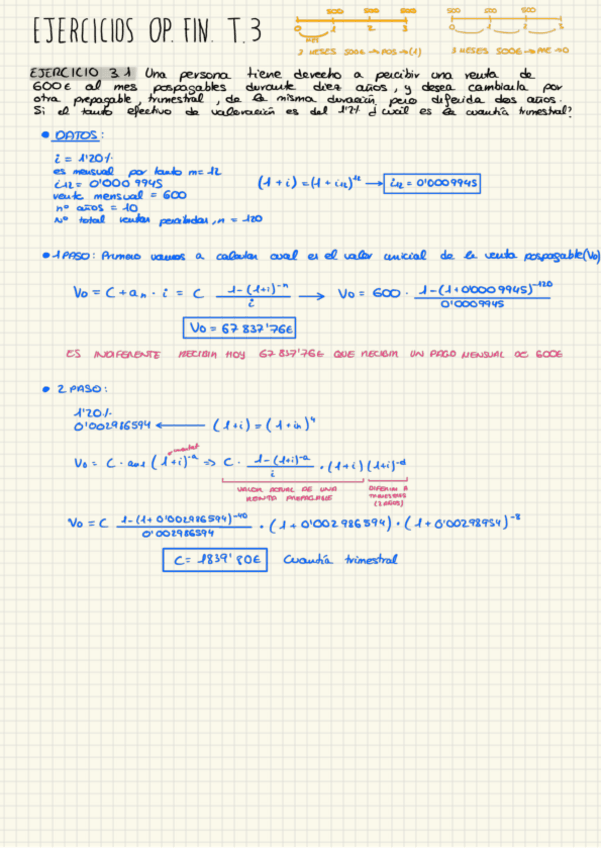 EJERCICIOS OP. FIN. T.3
500 500 500
0 1 2 3
3 MESES 500€ → POS → (1)
500 500 500
0 1 2 3
3 MESES 500€ → PRE → 0
EJERCICIO 3.1 Una persona tiene derecho a percibir una renta de
600€ al mes pospagables durante diez años, y desea cambiarla por
otra prepagable, trimestral, de la misma duración, pero diferida dos años.
Si el tanto efectivo de valoración es del 1'2% ¿cuál es la cuantía trimestral?
• DATOS:
i = 1'20%
es mensual por tanto m = 12
i12 = 0'0009945
renta mensual = 600
nº años = 10
Nº total rentas, n = 120
(1+i) = (1+i12)^12 → i12 = 0'0009945
• 1 PASO: Primero vamos a calcular cual es el valor inicial de la renta pospagable (Vo)
Vo = C · an · i = C (1-(1+i)^-n)/i → Vo = 600 · (1-(1+0'0009945)^-120)/0'0009945
Vo = 67 837'76€
ES INDIFERENTE RECIBIR HOY 67 837'76€ QUE RECIBIR UN PAGO MENSUAL DE 600€
• 2 PASO:
1'20%
0'002986594 ← (1+i) = (1+in)^4
Vo = C · (1+i)^-d ⇒ C · (1-(1+i)^-n)/i · (1+i) (1+i)^-d
VALOR ACTUAL DE UNA RENTA PREPAGABLE
TRIMESTRES (2 AÑOS)
Vo = C (1-(1+0'002986594)^-40)/0'002986594 · (1+0'002986594) · (1+0'00298954)^-8
C = 1839'80€ Cuantía trimestral